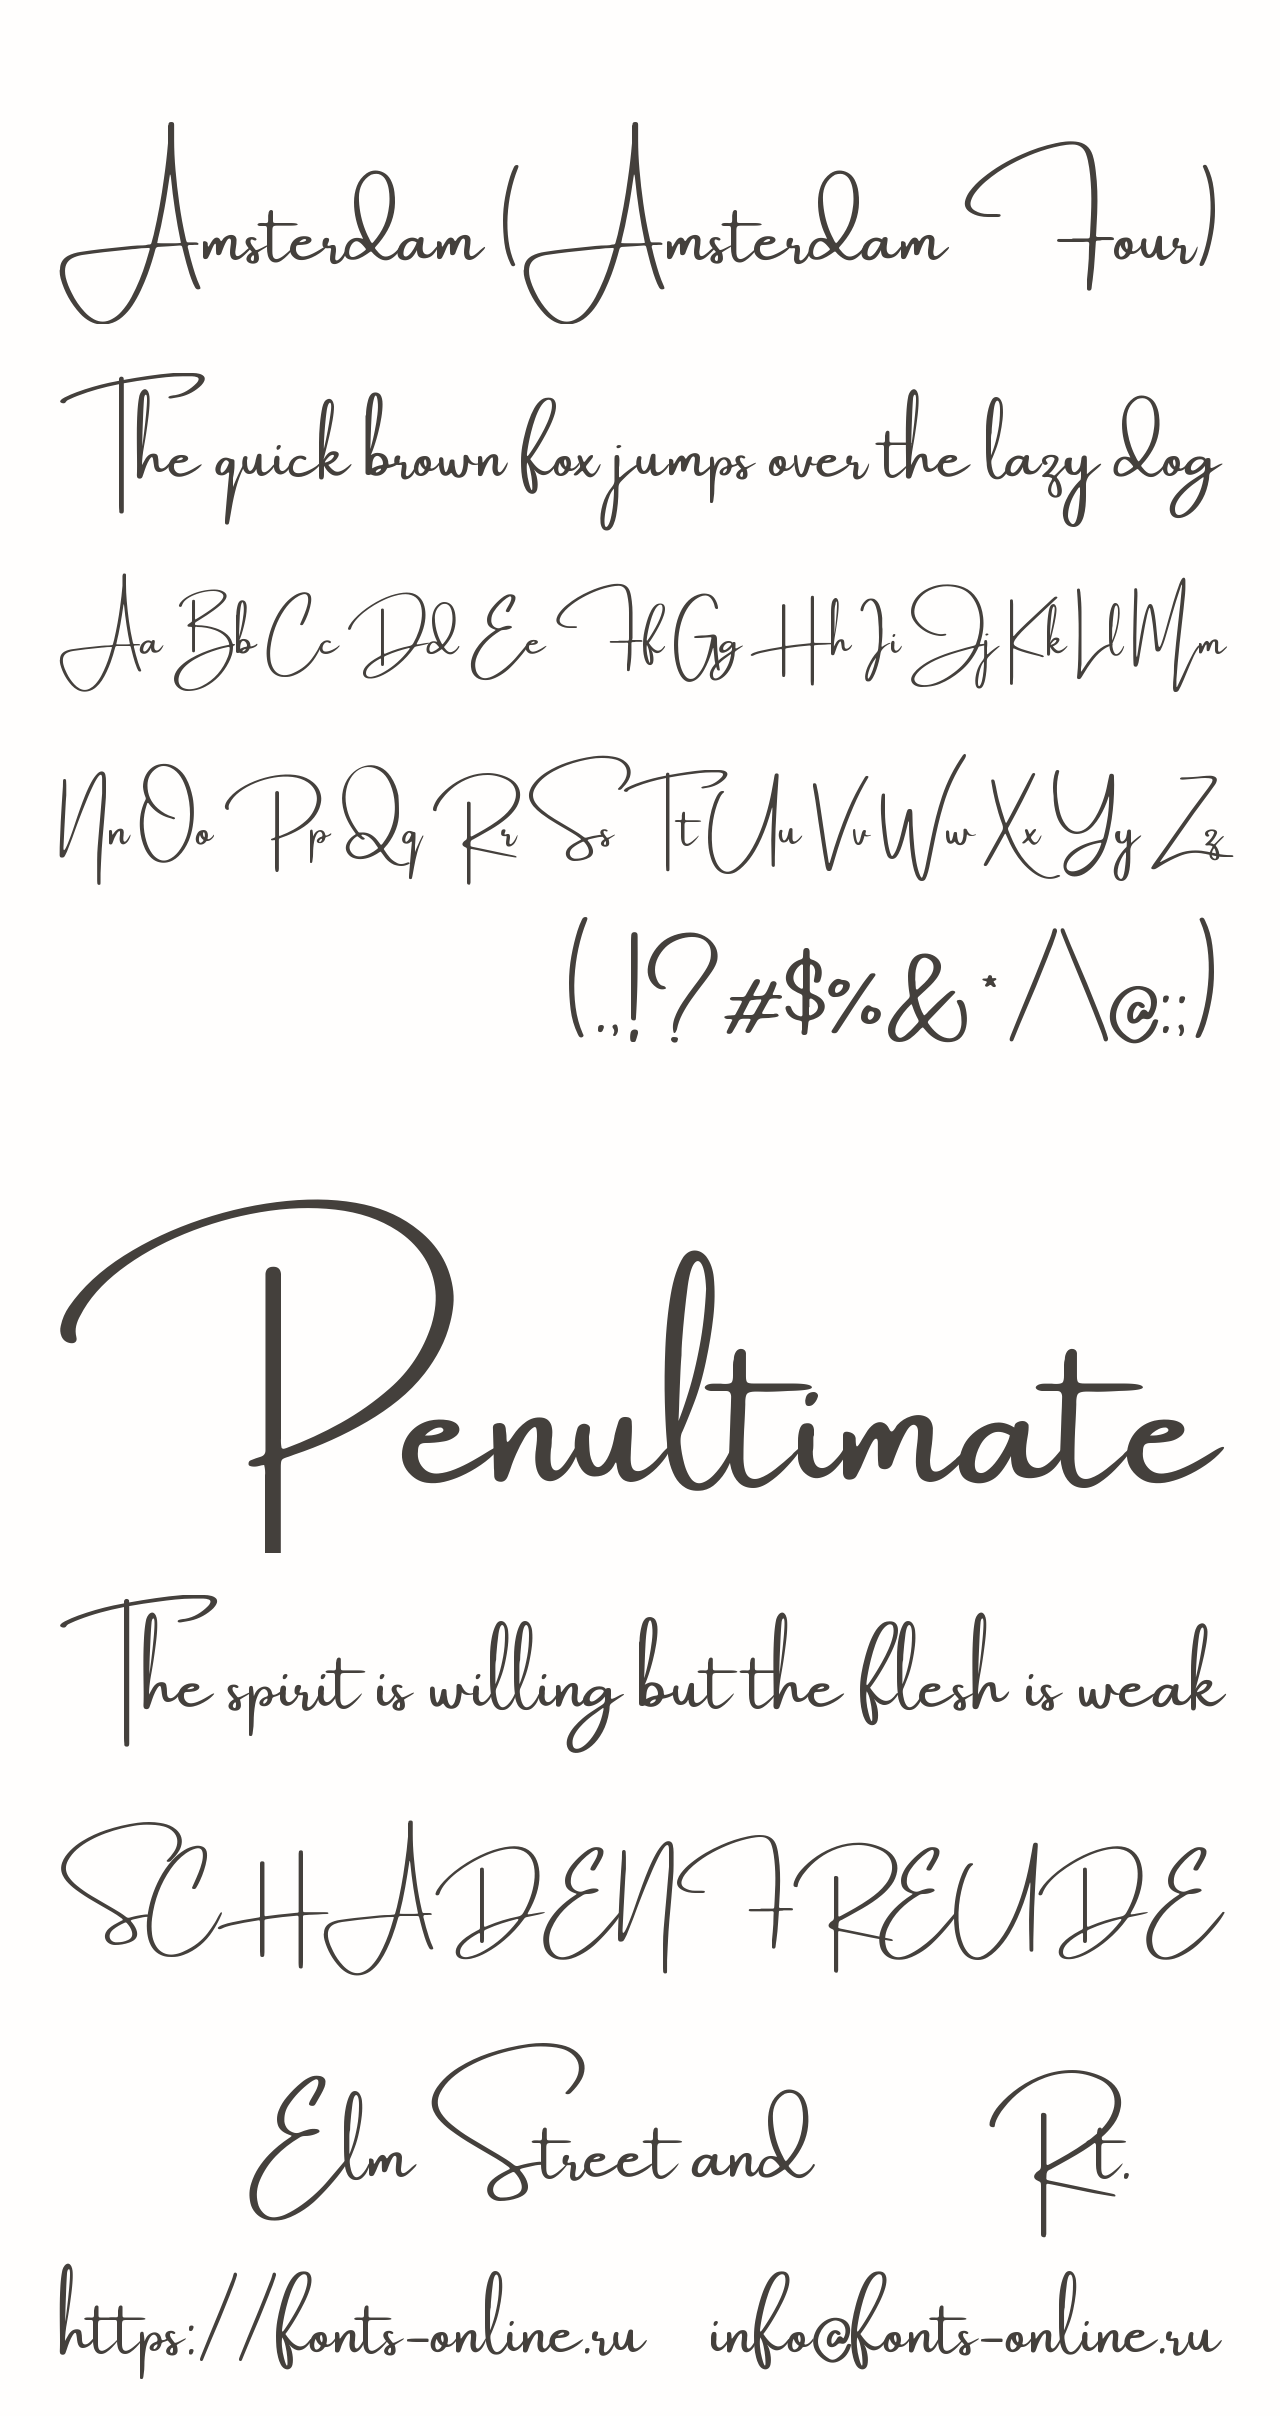 Amsterdam (Amsterdam Four)
The quick brown fox jumps over the lazy dog
Aa Bb Cc Dd Ee Ff Gg Hh Ii Jj Kk Ll Mm
Nn Oo Pp Qq Rr Ss Tt Uu Vv Ww Xx Yy Zz
(.,!?#$%&*/\@:;)
Penultimate
The spirit is willing but the flesh is weak
SCHADENFREUDE
Elm Street and Rt.
https://fonts-online.ru info@fonts-online.ru